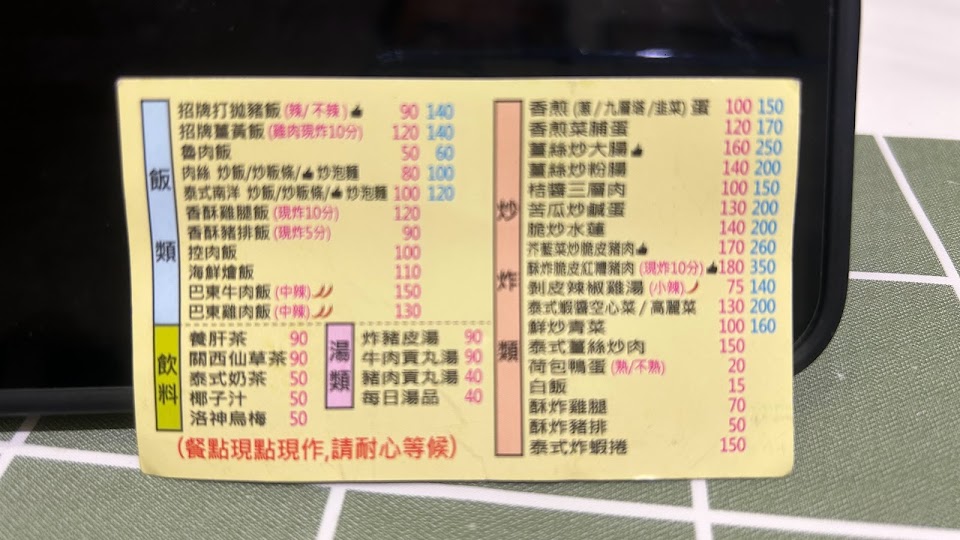 飯類
招牌打拋豬飯(辣/不辣) 90 140
招牌薑黃飯(雞肉現炸10分) 120 140
魯肉飯 50 60
肉絲 炒飯/炒粄條/炒泡麵 80 100
泰式南洋 炒飯/炒粄條/炒泡麵 100 120
香酥雞腿飯(現炸10分) 120
香酥豬排飯(現炸5分) 90
控肉飯 100
海鮮燴飯 110
巴東牛肉飯(中辣) 150
巴東雞肉飯(中辣) 130
飲料
養肝茶 90
關西仙草茶 90
泰式奶茶 50
椰子汁 50
洛神烏梅 50
湯類
炸豬皮湯 90
牛肉貢丸湯 90
豬肉貢丸湯 40
每日湯品 40
(餐點現點現作,請耐心等候)
炒炸類
香煎(蔥/九層塔/韭菜)蛋 100 150
香煎菜脯蛋 120 170
薑絲炒大腸 160 250
薑絲炒粉腸 140 200
桔醬三層肉 100 150
苦瓜炒鹹蛋 130 200
脆炒水蓮 140 200
芥藍菜炒脆皮豬肉 170 260
酥炸脆皮紅糟豬肉(現炸10分) 180 350
剝皮辣椒雞湯(小辣) 75 140
泰式蝦醬空心菜/高麗菜 130 200
鮮炒青菜 100 160
泰式薑絲炒肉 150
荷包鴨蛋(熟/不熟) 20
白飯 15
酥炸雞腿 70
酥炸豬排 50
泰式炸蝦捲 150